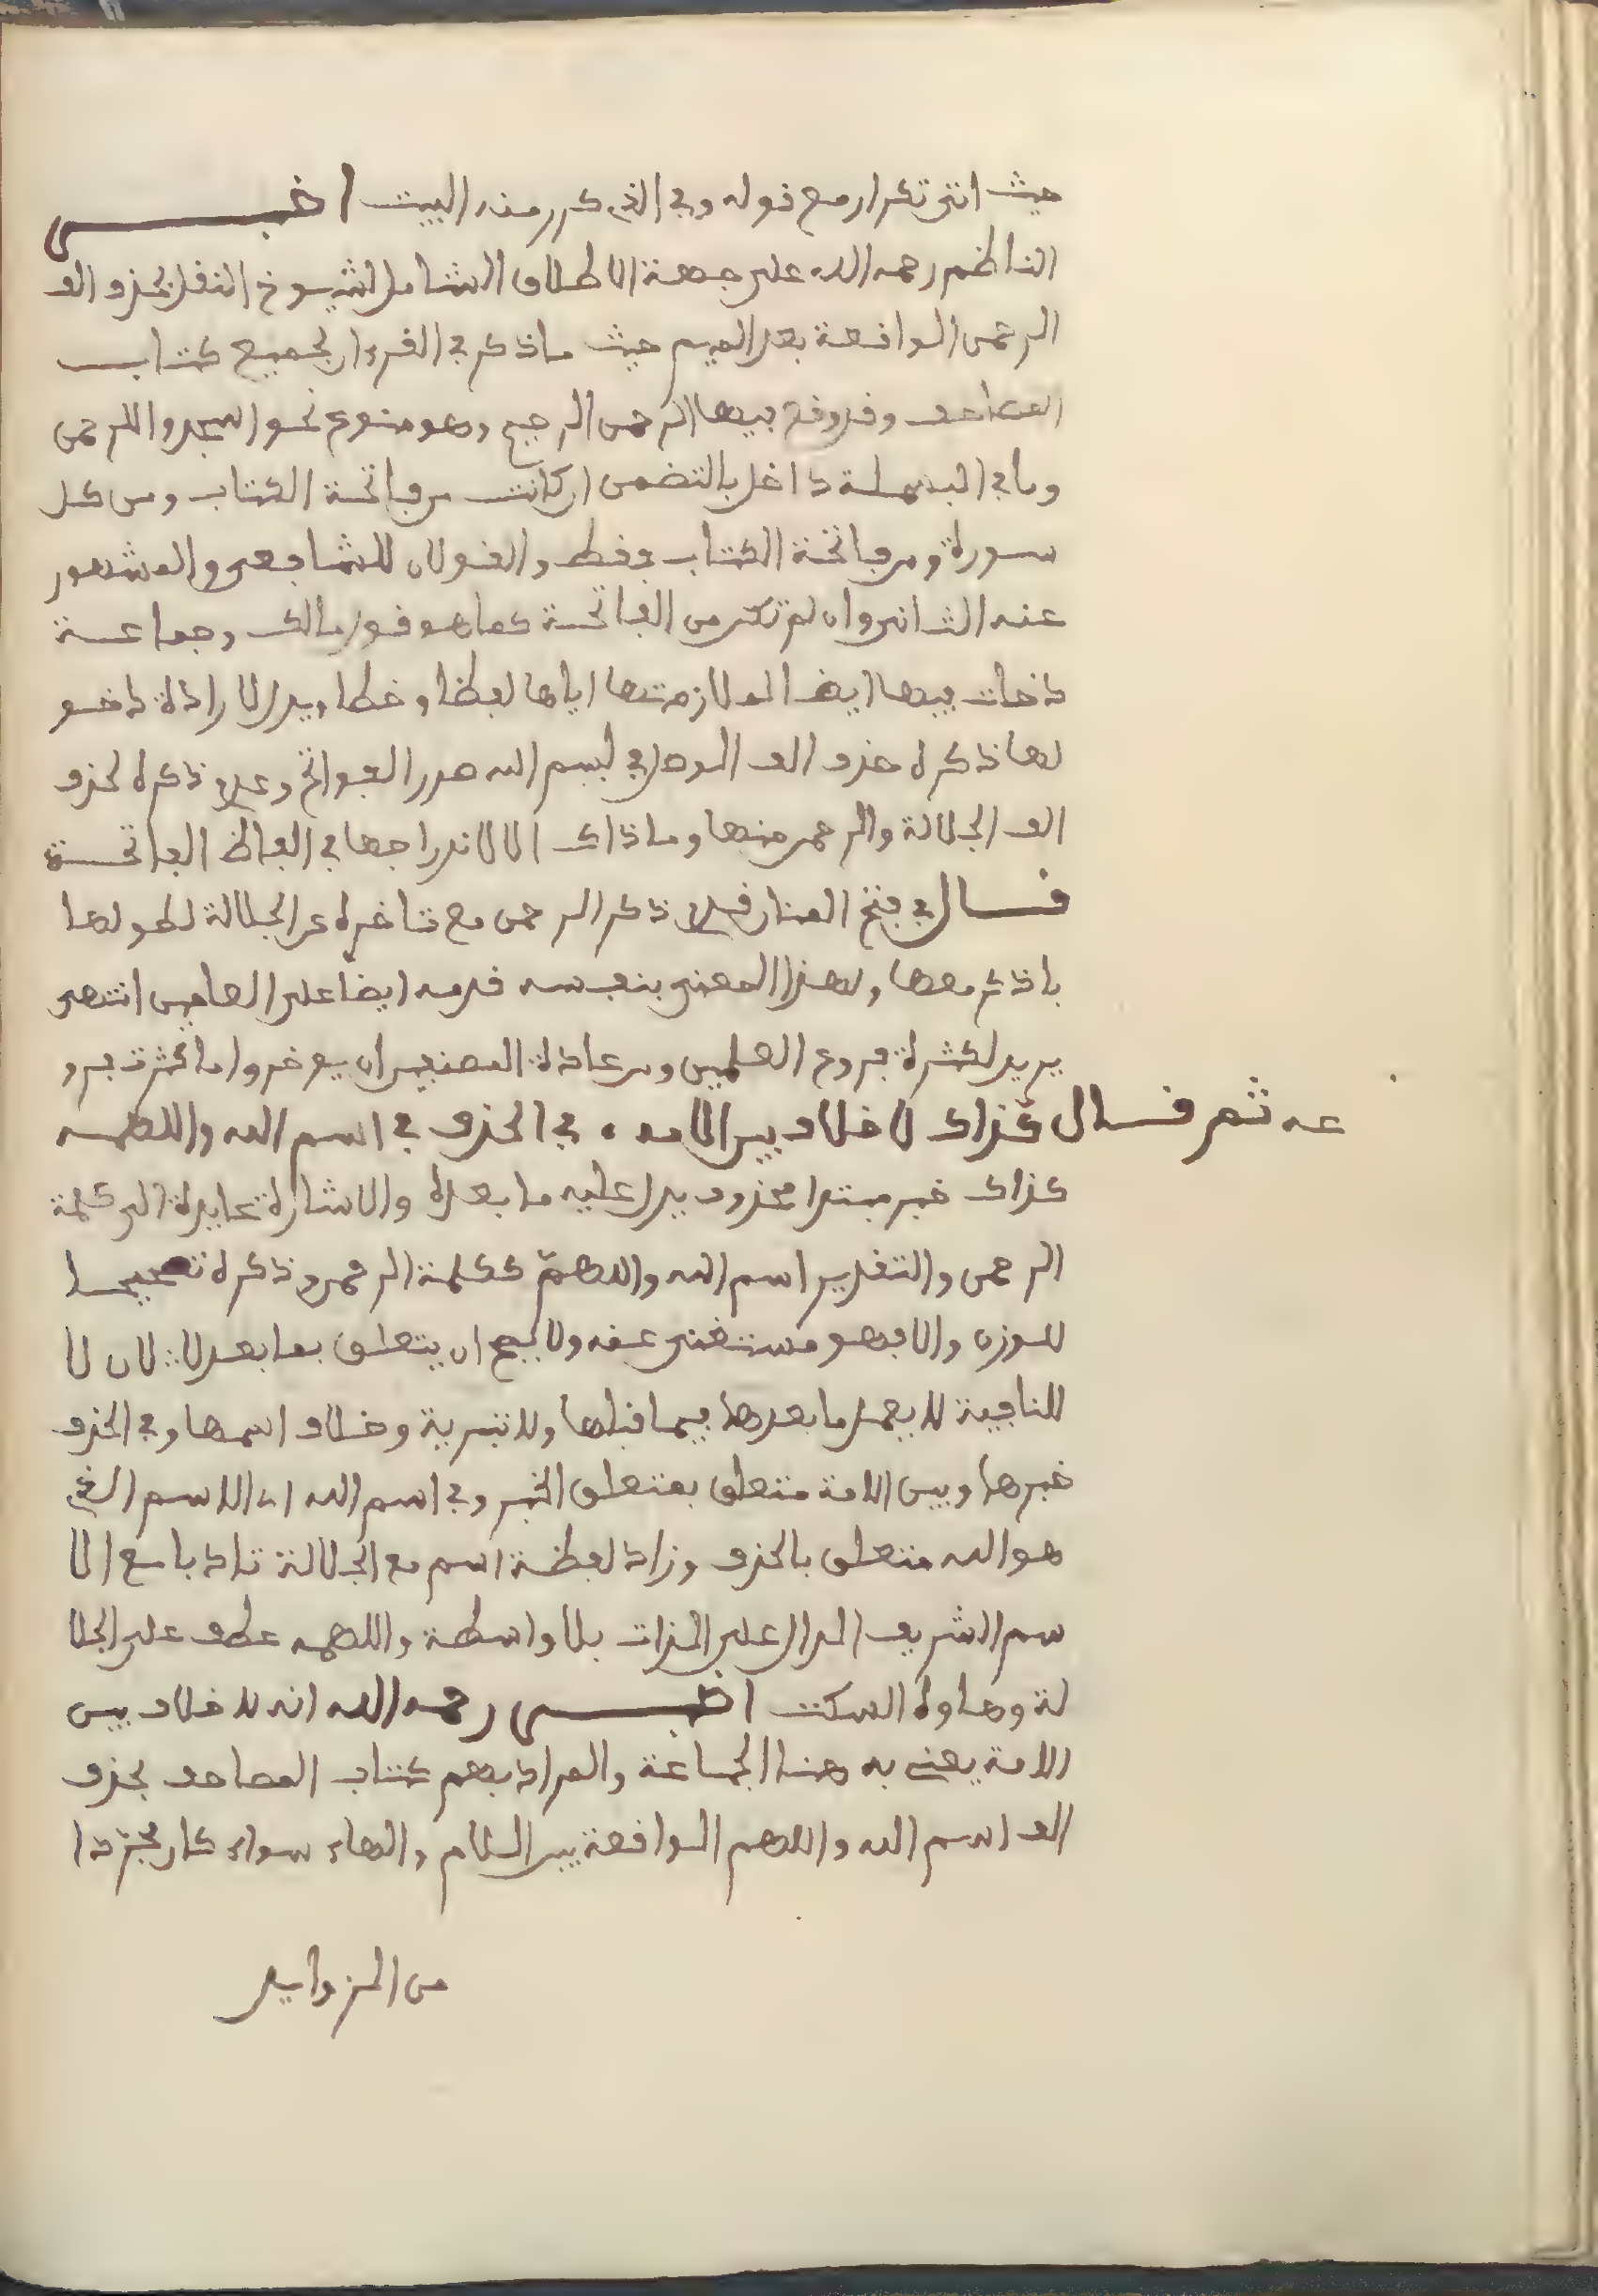 حيث اتى تكرار مع قوله وفي الذي كرر منه البيت اخبـــــر
الناظم رحمه الله على جهة الاطلاق الشامل لشيوخ النقل بحذف الف
الرحمن الواقعة بعد الميم حيث ما ذكر في القرءان لجميع كتاب
المصاحف وقد وقع فيها الرحمن الرحيم وهو منوع نحو اسجدوا للرحمن
وما في البسملة داخل بالتضمن ان كانت من فاتحة الكتاب ومن كل
سورة ومن فاتحة الكتاب فقط والقولان للشافعي والمشهور
عنه الثاني وان لم تكن من الفاتحة كما هو قول مالك وجماعة
دخلت فيها ايضا لملازمتها اياها لفظا وخطا ويدل لارادة دخو
لها ذكره حذف الف الوصل في لبسم الله صدر الفواتح وعلى ذكره لحذف
الف الجلالة والرحمن منها وما ذاك الا لاندراجها في الفاظ الفاتحة
قـــال في فتح المنان قيل ذكر الرحمن مع تاخره عن الجلالة لطولها
باذكر معها ولهذا المعنى بنفسه قدمه ايضا على العلمين انتهى
يريد لكثرة فروع العلمين ومن عادة المصنفين ان يوخروا ما كثرت فرو
عه ثم قـــال كذاك لا خلاف بين الامه ، في الحذف في اسم الله واللهمه
كذاك خبر مبتدا محذوف يدل عليه ما بعده والاشارة عايدة الى كلمة
الرحمن والتقدير اسم الله واللهمّ ككلمة الرحمن وذكره تصحيحا
للوزن والا فهو مستغنى عنه ولا يصح ان يتعلق بما بعد لا لان لا
للنافية لا يعمل ما بعدها فيما قبلها ولا تبرية وخلاف اسمها وفي الحذف
خبرها وبين الامة متعلق بمتعلق الخبر وفي اسم الله اي الاسم الذي
هو الله متعلق بالحذف وزاد لفظة اسم مع الجلالة تادبا مع الا
سم الشريف الدال على الذات بلا واسطة واللهمه عطف على الجلا
لة وهاوه للسكت اخبـــــر رحمه الله انه لا خلاف بين
الامة يعني به هنا الجماعة والمراد بهم كتاب المصاحف بحذف
الف اسم الله واللهم الواقعة بين اللام والهاء سواء كان مجرّدا
من الزوايد